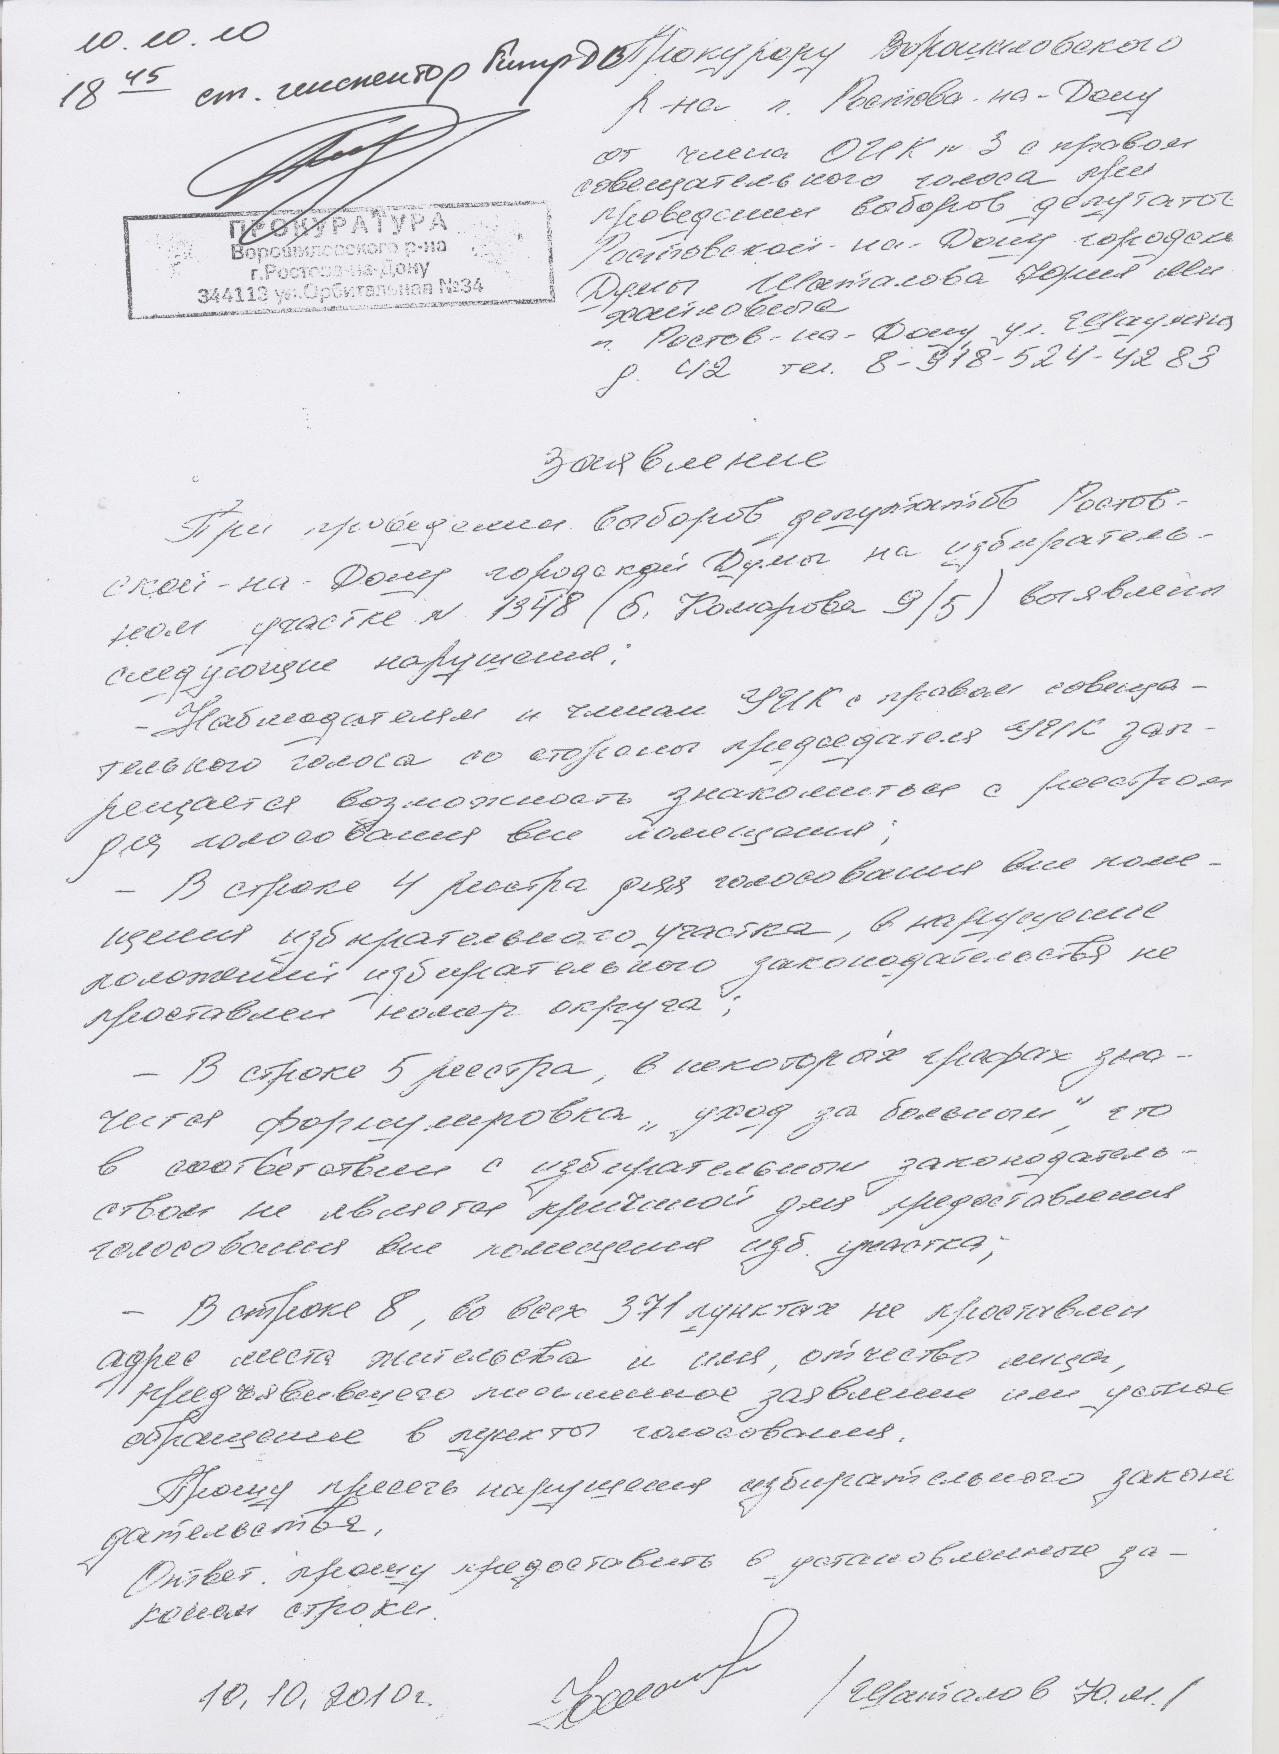 10.10.10
18 45 ст. инспектор
ПРОКУРАТУРА
Ворошиловского р-на
г.Ростова-на-Дону
344113 ул.Орбитальная №34
Прокурору Ворошиловского
р-на г. Ростова-на-Дону
от члена ОИК № 3 с правом
совещательного голоса при
проведении выборов депутатов
Ростовской-на-Дону городск
Думы Шаталова Юрия Ми
хайловича
г. Ростов-на-Дону ул. Шаумяна
д. 42 тел. 8-918-524-4283
Заявление
При проведении выборов депутатов Ростов-
ской-на-Дону городской Думы на избиратель-
ном участке № 1348 (б. Комарова 9/5) выявлены
следующие нарушения:
- Наблюдателям и членам УИК с правом совеща-
тельного голоса со стороны председателя УИК зап-
рещается возможность знакомиться с реестром
для голосования вне помещения;
- В строке 4 реестра для голосования вне поме-
щения избирательного участка, в нарушение
положений избирательного законодательства не
проставлен номер округа;
- В строке 5 реестра, в некоторых графах зна-
чится формулировка „уход за больным", что
в соответствии с избирательным законодатель-
ством не является причиной для предоставления
голосования вне помещения изб. участка;
- В строке 8, во всех 371 пунктах не проставлен
адрес места жительства и имя, отчество лица,
предъявившего письменное заявление или устное
обращение в пункты голосования.
Прошу пресечь нарушения избирательного законо
дательства.
Ответ прошу предоставить в установленные за-
коном строки.
10.10.2010г.
/Шаталов Ю.М./